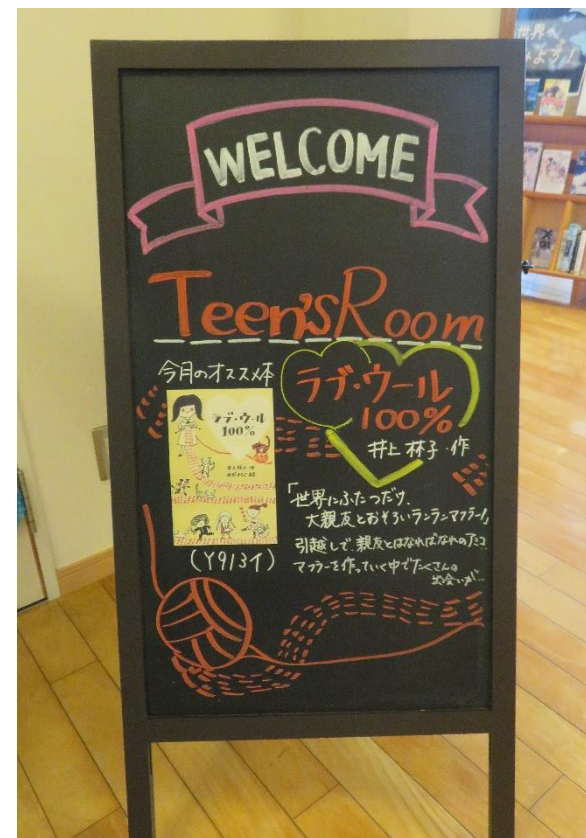 世界へ
WELCOME
Teen'sRoom
今月のオススメ本
ラブ・ウール
100%
井上 林子・作
ラブ・ウール
100%
(Y913イ)
「世界にふたつだけ、
大親友とおそろいランランマフラー!」
引越しで、親友とはなればなれのアコ
マフラーを作っていく中でたくさんの
出会いが…